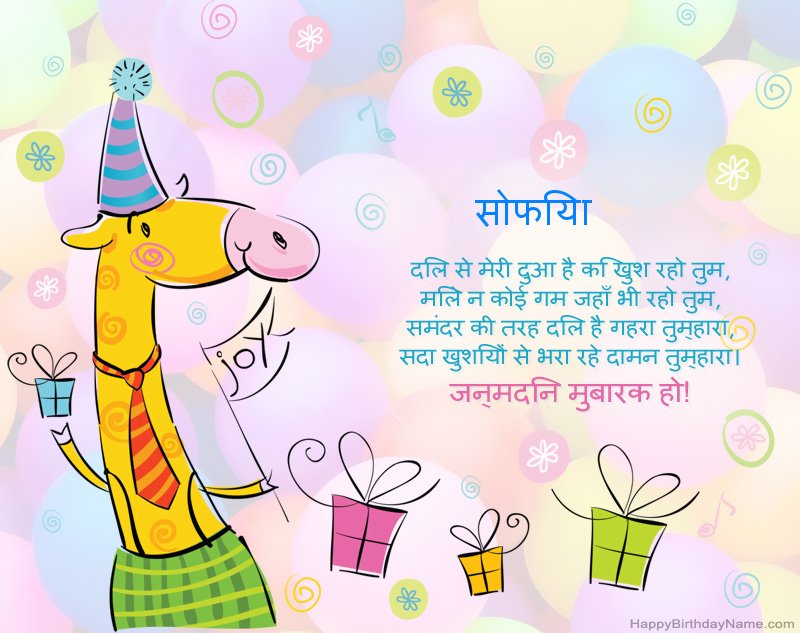 सोफिया
दिल से मेरी दुआ है कि खुश रहो तुम,
मिले न कोई गम जहाँ भी रहो तुम,
समंदर की तरह दिल है गहरा तुम्हारा,
सदा खुशियों से भरा रहे दामन तुम्हारा।
जन्मदिन मुबारक हो!
joy
HappyBirthdayName.com